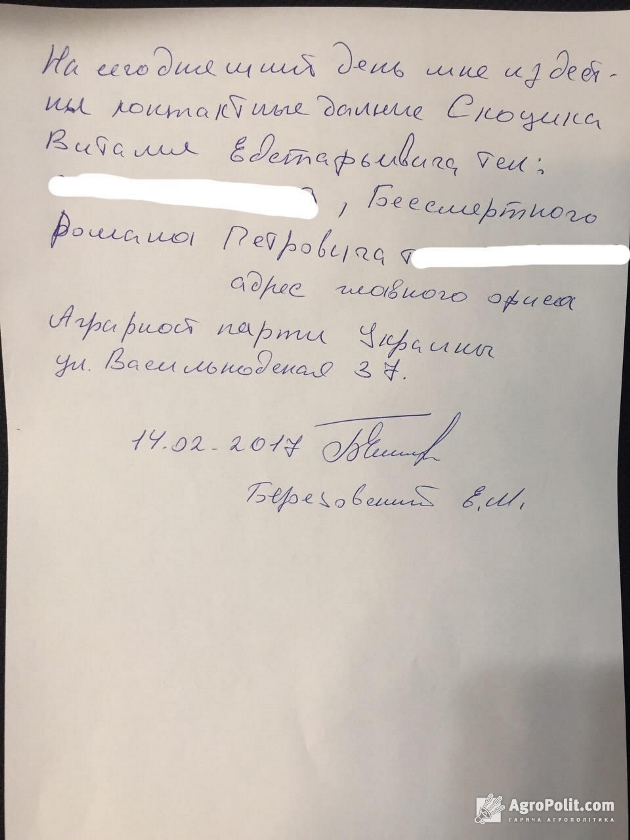 На сегоднешний день мне извест-
ны контактные данные Скоцика
Виталия Евстафьевича тел:
, Бессмертного
Романа Петровича т
адрес главного офиса
Аграрной парти Украины
ул. Васильковская 37.
14.02.2017
Березовский Е.М.
AgroPolit.com
ГАРЯЧА АГРОПОЛІТИКА